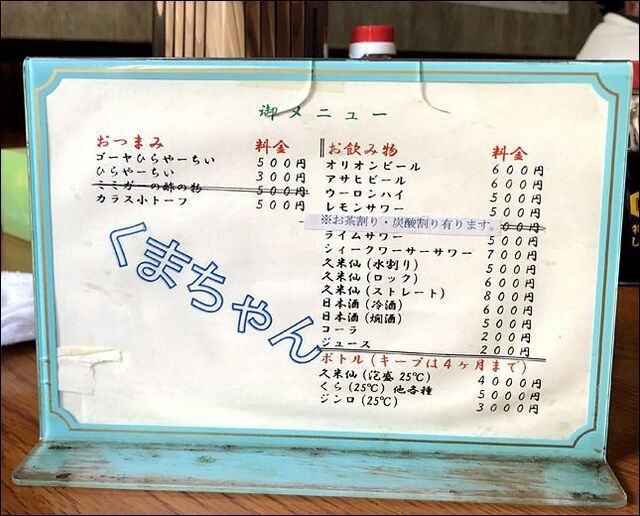 御メニュー
おつまみ 料金
ゴーヤひらやーちい 500円
ひらやーちい 300円
ミミガーの酢の物 500円
カラス小トーフ 500円
くまちゃん
お飲み物 料金
オリオンビール 600円
アサヒビール 600円
ウーロンハイ 500円
レモンサワー 500円
※お茶割り・炭酸割り有ります。 00円
ライムサワー 500円
シィークワーサーサワー 700円
久米仙(水割り) 500円
久米仙(ロック) 600円
久米仙(ストレート) 800円
日本酒(冷酒) 600円
日本酒(燗酒) 500円
コーラ 200円
ジュース 200円
ボトル(キープは4ヶ月まで)
久米仙(泡盛25℃) 4000円
くら(25℃)他各種 5000円
ジンロ(25℃) 3000円